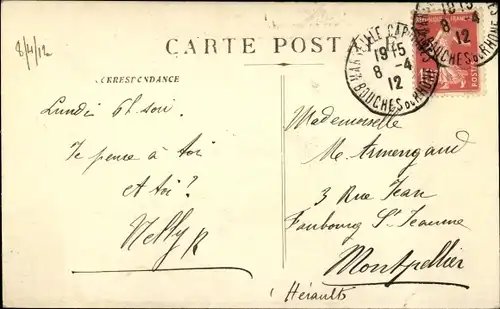 8/4/12
CARTE POST
CORRESPONDANCE
MARSEILLE CAPUCINES
19 15
8 -4
12
BOUCHES DU RHONE
19 15
8 -4
12
BOUCHES DU RHONE
POSTES
Lundi 6h soir.
Je pense à toi
et toi?
Nelly
Mademoiselle
M. Armengaud
3 Rue Jean
Faubourg St Jeaume
Montpellier
Hérault